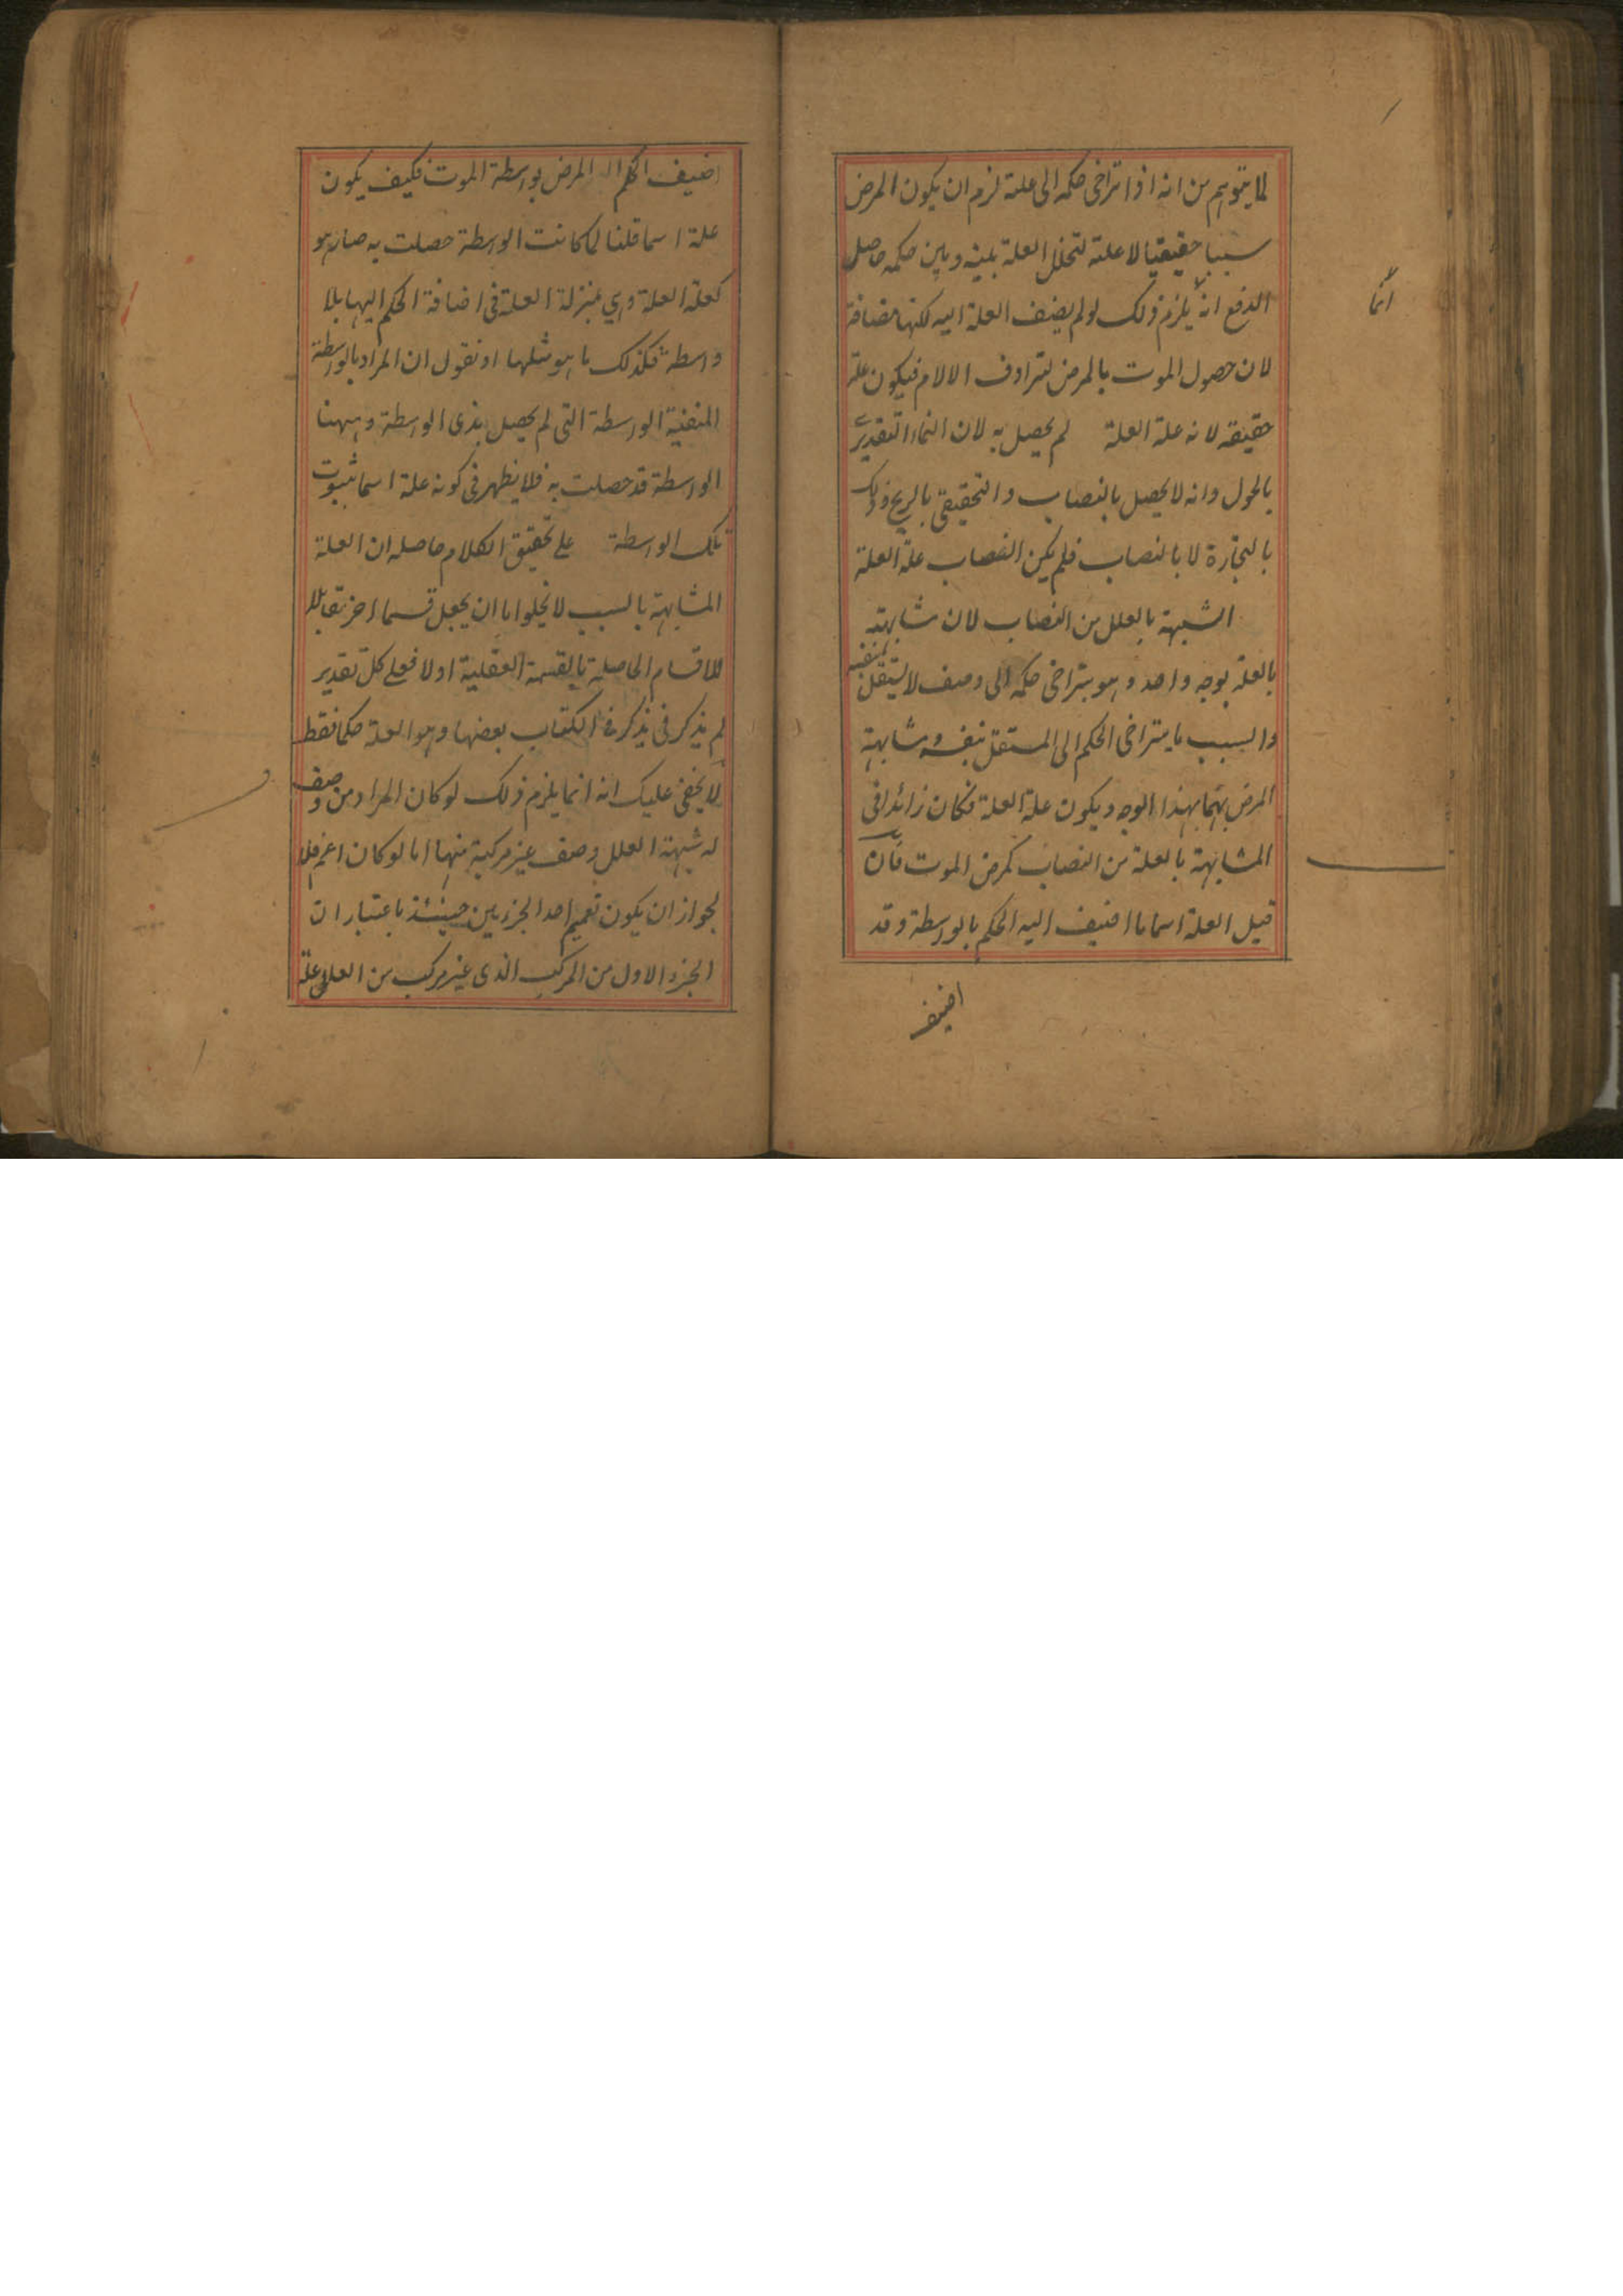 لما يتوهم من انه اذا تراخى حكمه الى علة لزم ان يكون المرض
سببا حقيقيا لا علة لتخلل العلة بينه وبين حكمه حاصل
الدفع انه يلزم ذلك لو لم يضف العلة اليه لكنها مضافة
انما
لان حصول الموت بالمرض لترادف الالام فيكون علة
حقيقة لانه علة العلة لم يحصل به لان النماء التقديري
بالحول وانه لا يحصل بالنصاب والتحقيقي بالربح وذلك
بالتجارة لا بالنصاب فلم يكن النصاب علة العلة
الشبهة بالعلل من النصاب لان شابهته
بالعلة بوجه واحد وهو يتراخى حكمه الى وصف لا يستقل بنفسه
والسبب ما يتراخى الحكم الى المستقل بنفسه وشابهة
المرض بهما بهذا الوجه ويكون علة العلة فكان زائدا فى
المشابهة بالعلة من النصاب كمرض الموت فان
قيل العلة اسما ما اضيف اليه الحكم بالواسطة وقد
اضيف
اضيف الحكم الى المرض بواسطة الموت فكيف يكون
علة اسما قلنا لما كانت الواسطة حصلت به صار هو
كعلة العلة وهي بمنزلة العلة فى اضافة الحكم اليها بلا
واسطة فكذلك ما هو مثلها او نقول ان المراد بالواسطة
المنفية الواسطة التى لم يحصل بذى الواسطة وههنا
الواسطة قد حصلت به فلا يظهر فى كونه علة اسما ثبوت
تلك الواسطة على تحقيق الكلام حاصله ان العلة
المشابهة بالسبب لا يخلوا ما ان يجعل قسما اخر مقابلا
للاقسام الحاصلة بالقسمة العقلية اولا فعلى كل تقدير
لم يذكر فى يذكر فى الكتاب بعضها وهو العلة حكما فقط
لا يخفى عليك انه انما يلزم ذلك لو كان المراد من وصف
له شبهة العلل وصف غير مركبة منها اما لو كان اعم فلا
لجواز ان يكون تعميم احد الجزءين حينئذ باعتبار ان
الجزء الاول من المركب الذى غير مركب من العلل علة